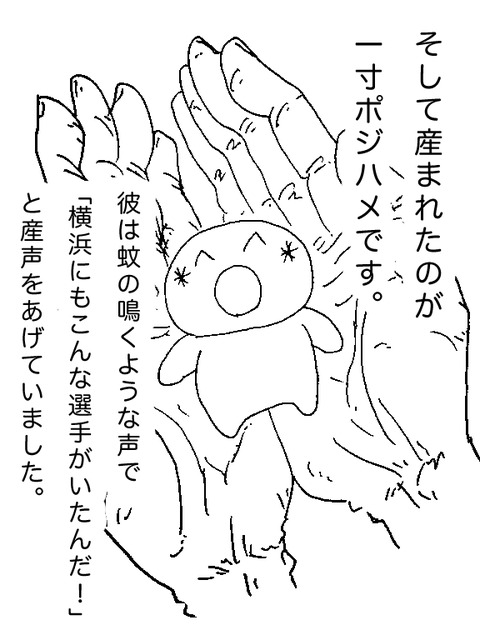 そして産まれたのが
一寸ポジハメです。
彼は蚊の鳴くような声で
「横浜にもこんな選手がいたんだ！」
と産声をあげていました。